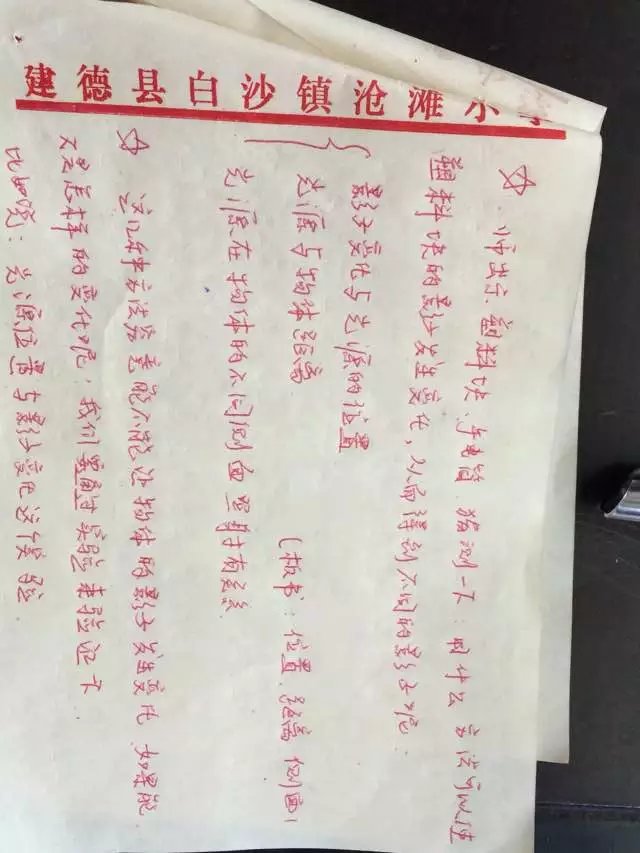 建德县白沙镇沧滩小
☆ 师出示塑料块、手电筒,猜测一下:用什么方法可以使
塑料块的影子发生变化,从而得到不同的影子呢?
影子变化与光源的位置
光源与物体距离
(板书:位置、距离 侧面)
光源在物体的不同侧面照射有关系
☆ 这几种方法究竟能不能让物体的影子发生变化,如果能
又是怎样的变化呢,我们要通过实验来验证下
比如说:光源位置与影子变化这个实验